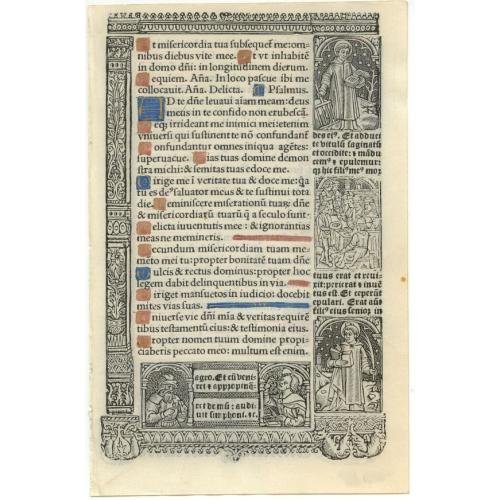 Et misericordia tua subsequet᷒ me: om-
nibus diebus vite mee. Et vt inhabitē
in domo dñi: in longitudinem dierum.
Requiem. Aña. In loco pascue ibi me
collocauit. Aña. Delicta. Psalmus.
AD te dñe leuaui aīam meam: deus
meus in te confido non erubescā.
Neq; irrideant me inimici mei: etenim
vniuersi qui sustinent te nō confundant᷒
Confundantur omnes iniqua agētes:
superuacue. Vias tuas domine demon
stra michi: & semitas tuas edoce me.
Dirige me ī veritate tua & doce me: q̄a
tu es de᷒ saluator meus & te sustinui tota
die. Reminiscere miserationū tuarū dñe
& misericordiarū tuarū q̄ a seculo sunt.
Delicta iuuentutis mee: & ignorantias
meas ne memineris.
Secundum misericordiam tuam me-
mēto mei tu: propter bonitatē tuam dñe
Dulcis & rectus dominus: propter hoc
legem dabit delinquentibus in via.
Diriget mansuetos in iudicio: docebit
mites vias suas.
Vniuerse vie dñi mīa & veritas requirē
tibus testamentū eius: & testimonia eius.
Propter nomen tuum domine propi-
ciaberis peccato meo: multum est enim.
des ei᷒. Et adduci
te vitulū saginatū
et occidite: & mādu
cem᷒ & epulemur:
q; hic fili᷒ me᷒ mor
tuus erat et reui-
xit: perierat & inuē
tus est. Et ceperūt
epulari. Erat aūt
fili᷒ eius senior in
agro. Et cū veni-
ret & appropinq̄-
ret domui: audi-
uit simphoni. &c.